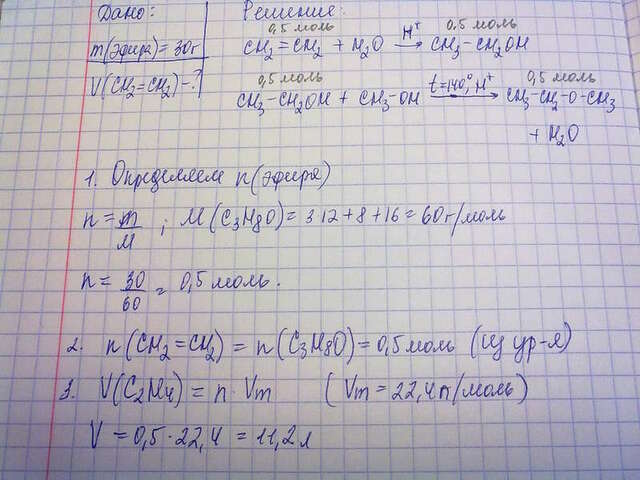 Дано:
Решение:
m(эфира) = 30г
V(CH2=CH2) - ?
0,5 моль 0,5 моль
CH2 = CH2 + H2O H+ → CH3 - CH2OH
0,5 моль 0,5 моль
CH3 - CH2OH + CH3 - OH t=140°, H+ → CH3 - CH2 - O - CH3
+ H2O
1. Определяем n(эфира)
n = m/M ; M(C3H8O) = 3·12 + 8 + 16 = 60г/моль
n = 30/60 = 0,5 моль.
2. n(CH2=CH2) = n(C3H8O) = 0,5 моль (из ур-я)
3. V(C2H4) = n · Vm (Vm = 22,4л/моль)
V = 0,5 · 22,4 = 11,2л